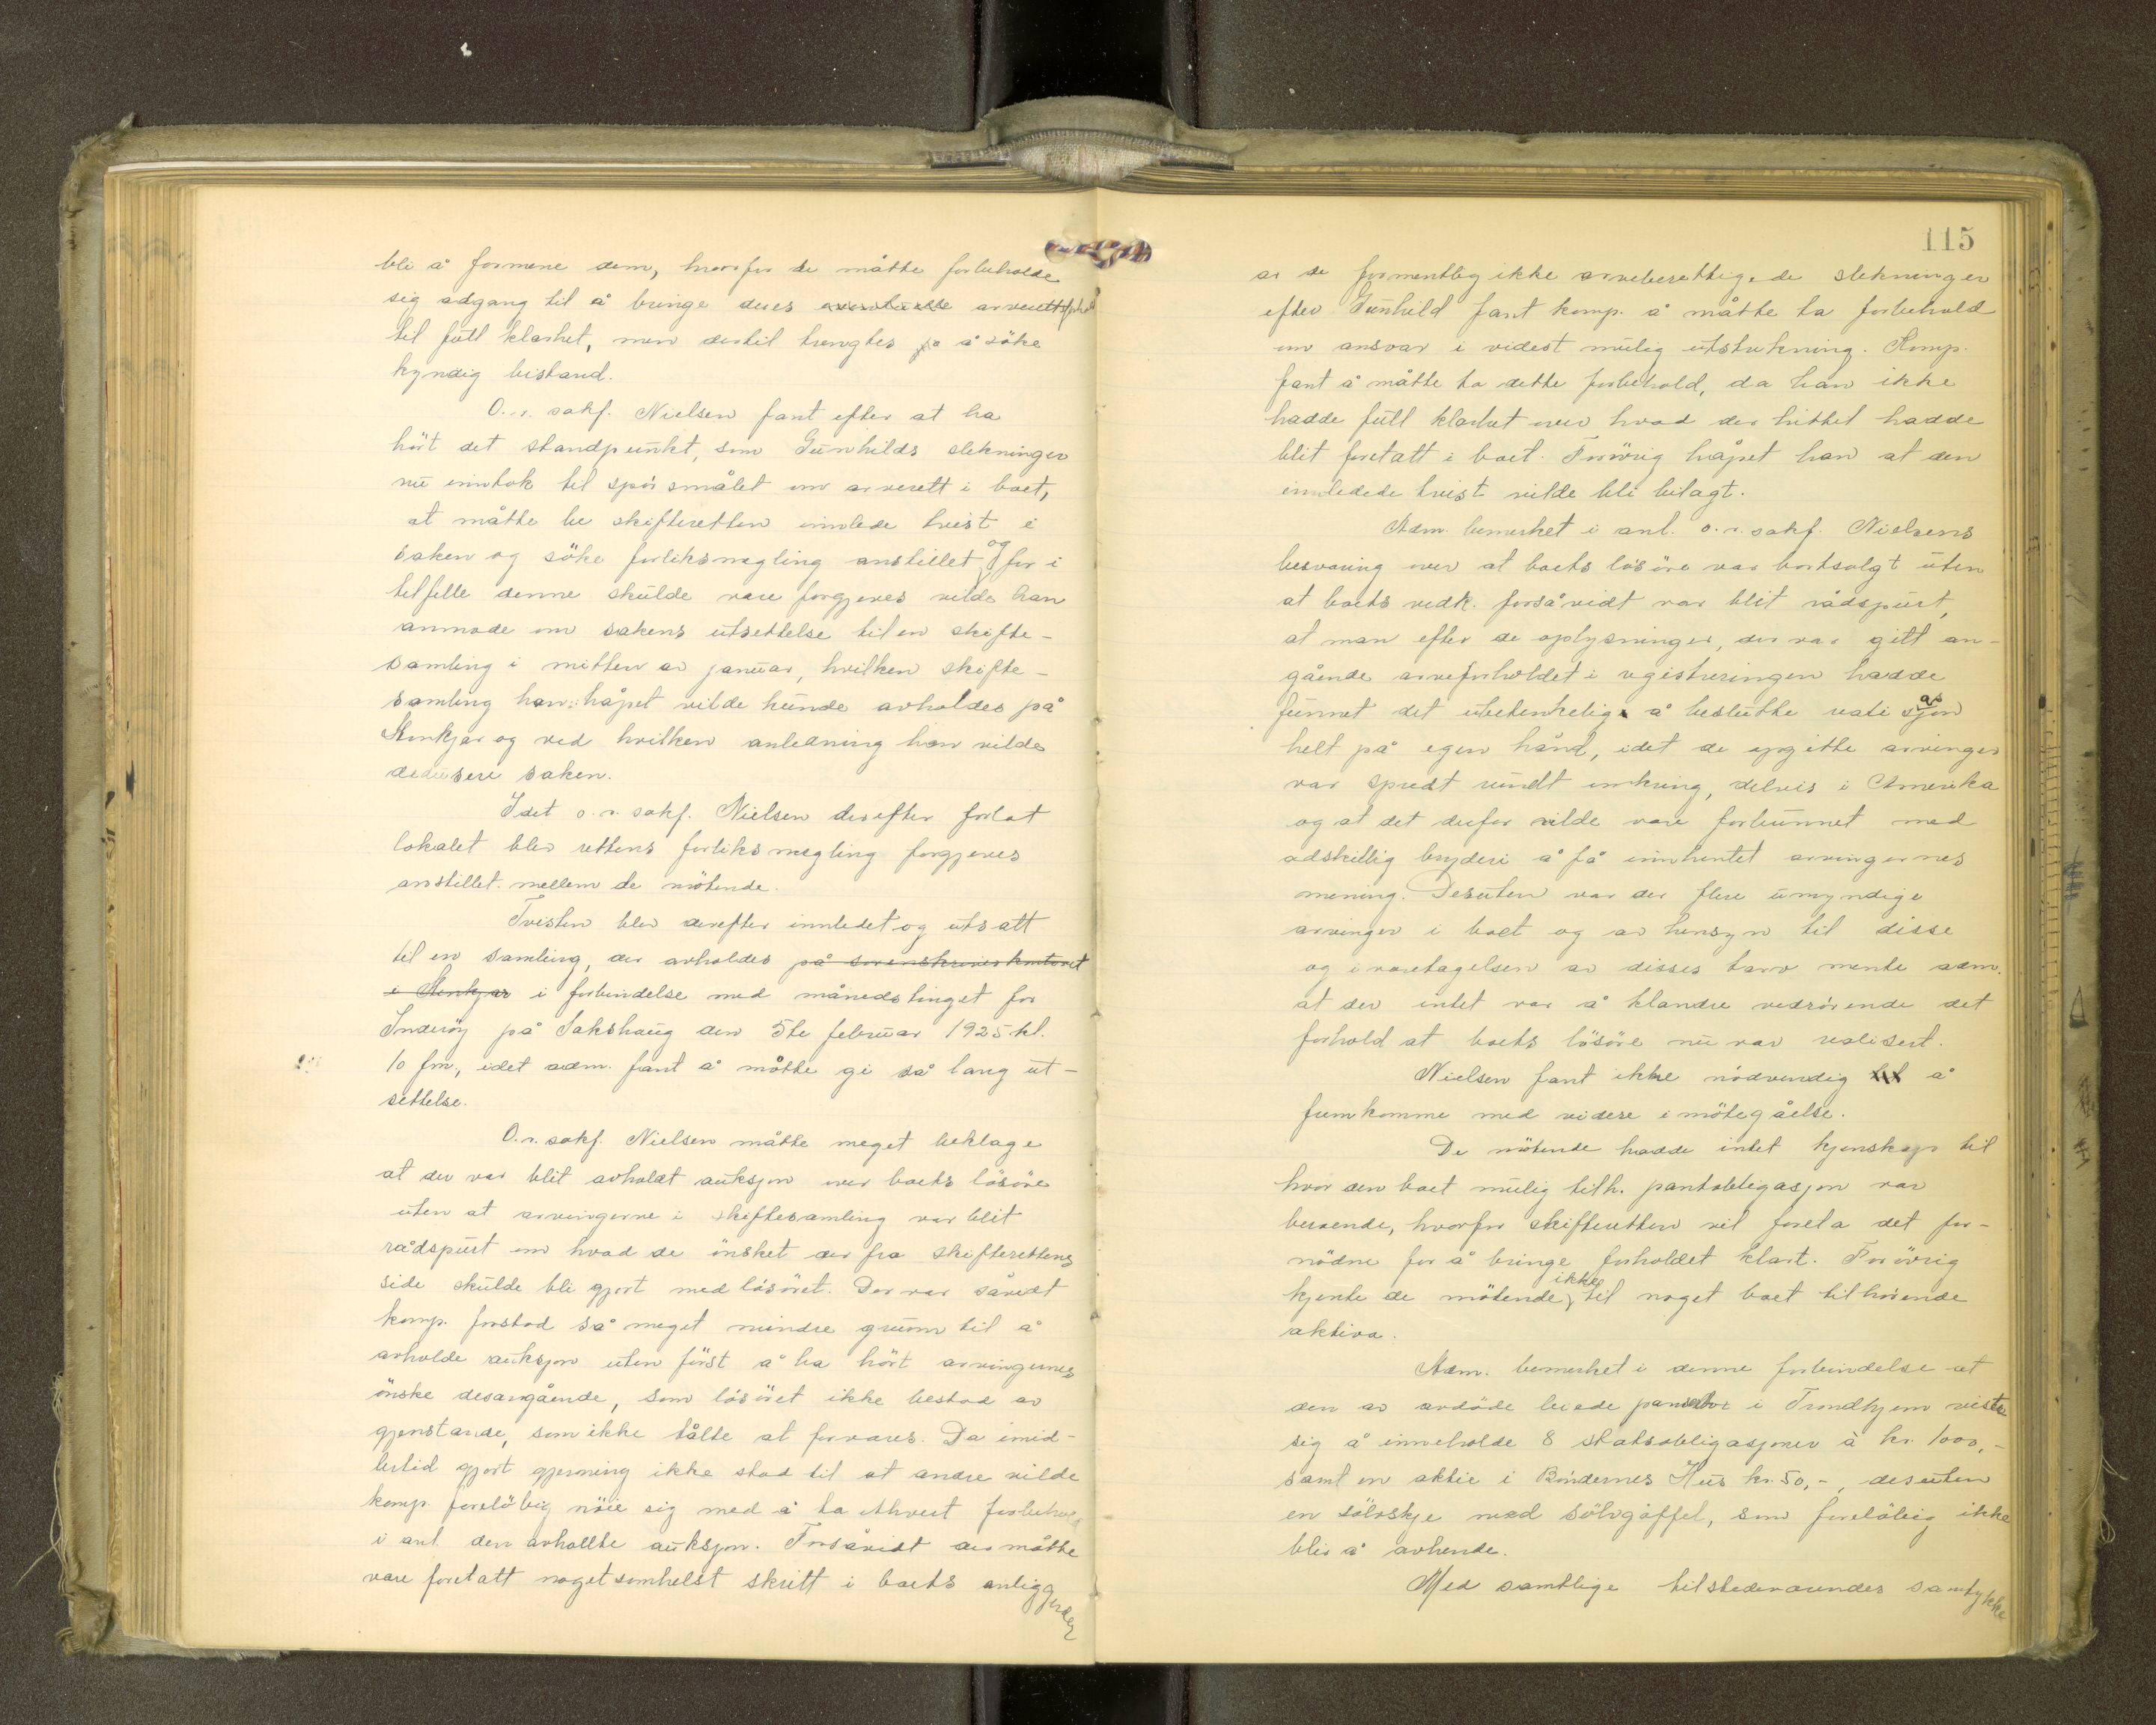 bli å formene dem, hvorfor de måtte forbeholde
sig adgang til å bringe deres arverettsforhold
til full klarhet, men dertil trengtes jo å söke
kyndig bistand.
O.r. sakf. Nielsen fant efter at ha
hört det standpunkt, som Gunhilds slektninger
nu inntok til spörsmålet om arverett i boet,
at måtte be skifteretten innlede tvist i
saken og söke forliksmegling anstillet og for i
tilfelle denne skulde være forgjeves vilde han
anmode om sakens utsettelse til en skifte-
samling i mitten av januar, hvilken skifte-
samling han håpet vilde kunde avholdes på
Stenkjær og ved hvilken anledning han vilde
dedusere saken.
Idet o.r. sakf. Nielsen derefter forlot
lokalet blev rettens forliksmegling forgjeves
anstillet mellem de mötende.
Tvisten blev derefter innledet og utsatt
til en samling, der avholdes på sorenskriverkontoret
i Stenkjær i forbindelse med månedstinget for
Inderöy på Sakshaug den 5te februar 1925 kl.
10 fm., idet adm. fant å måtte gi så lang ut-
settelse.
O.r. sakf. Nielsen måtte meget beklage
at der var blit avholdt auksjon over boets lösöre
uten at arvingerne i skiftesamling var blit
rådspurt om hvad de önsket der fra skifterettens
side skulde bli gjort med lösöret. Der var såvidt
komp. forstod så meget mindre grunn til å
avholde auksjon uten först å ha hört arvingernes
önske desangående, som lösöret ikke bestod av
gjenstande, som ikke tålte at forvares. Da imid-
lertid gjort gjerning ikke stod til at andre vilde
komp. forelöbig nöie sig med å ta ethvert forbehold
i anl. den avholdte auksjon. Forsåvidt der måtte
være foretatt noget somhelst skritt i boets anliggender
115
av de formentlig ikke arveberettigede slektninger
efter Gunhild fant komp. å måtte ta forbehold
om ansvar i videst mulig utstrekning. Komp.
fant å måtte ta dette forbehold, da han ikke
hadde full klarhet over hvad der hittil hadde
blit foretatt i boet. Forövrig håpet han at den
innledede tvist vilde bli bilagt.
Adm. bemerket i anl. o.r. sakf. Nielsens
besværing over at boets lösöre var bortsolgt uten
at boets vedk. forsåvidt var blit rådspurt,
at man efter de oplysninger, der var gitt an-
gående arveforholdet i registreringen hadde
funnet det ubetenkelig å beslutte realisasjon
helt på egen hånd, idet de opgitte arvinger
var spredt rundt omkring, delvis i Amerika
og at det derfor vilde være forbunnet med
adskillig bryderi å få innhentet arvingernes
mening. Desuten var der flere umyndige
arvinger i boet og av hensyn til disse
og i varetagelsen av disses tarv mente adm.
at der intet var å klandre vedrörende det
forhold at boets lösöre nu var realisert.
Nielsen fant ikke nödvendig å
fremkomme med videre imötegåelse.
De mötende hadde intet kjenskap til
hvor den boet mulig tilh. pantobligasjon var
beroende, hvorfor skifteretten vil foreta det for-
nödne for å bringe forholdet klart. Forövrig
kjente de mötende ikke til noget boet tilhörende
aktiva.
Adm. bemerket i denne forbindelse at
den av avdöde leiede i Trondhjem viste
sig å inneholde 8 statsobligasjoner à kr. 1000,-
samt en aktie i Böndernes Hus kr. 50,-, desuten
en sölvskje med sölvgaffel, som forelöbig ikke
blir å avhende.
Med samtlige tilstedeværendes samtykke